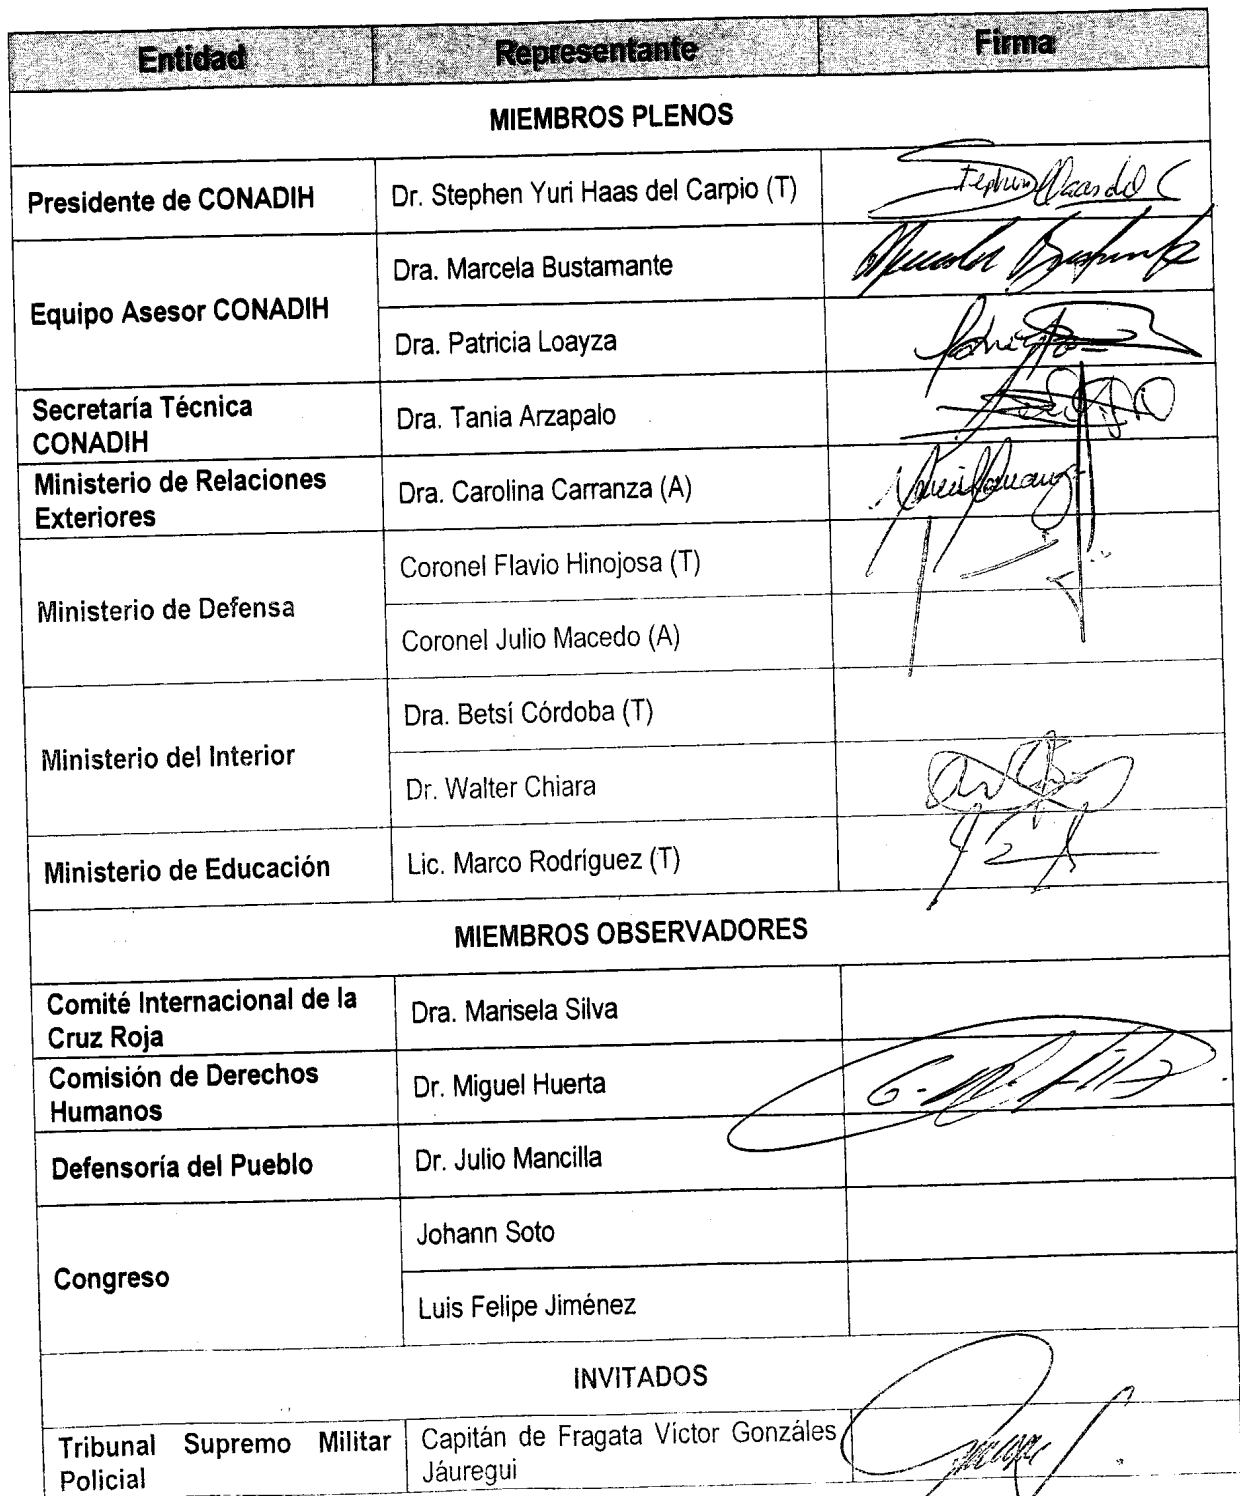 Entidad Representante Firma
MIEMBROS PLENOS
Presidente de CONADIH Dr. Stephen Yuri Haas del Carpio (T) Stephen Haas del C
Equipo Asesor CONADIH
Dra. Marcela Bustamante
Dra. Patricia Loayza
Secretaría Técnica
CONADIH
Dra. Tania Arzapalo
Ministerio de Relaciones
Exteriores
Dra. Carolina Carranza (A)
Ministerio de Defensa
Coronel Flavio Hinojosa (T)
Coronel Julio Macedo (A)
Ministerio del Interior
Dra. Betsí Córdoba (T)
Dr. Walter Chiara
Ministerio de Educación Lic. Marco Rodríguez (T)
MIEMBROS OBSERVADORES
Comité Internacional de la
Cruz Roja
Dra. Marisela Silva
Comisión de Derechos
Humanos
Dr. Miguel Huerta
Defensoría del Pueblo Dr. Julio Mancilla
Congreso
Johann Soto
Luis Felipe Jiménez
INVITADOS
Tribunal Supremo Militar
Policial
Capitán de Fragata Víctor Gonzáles
Jáuregui